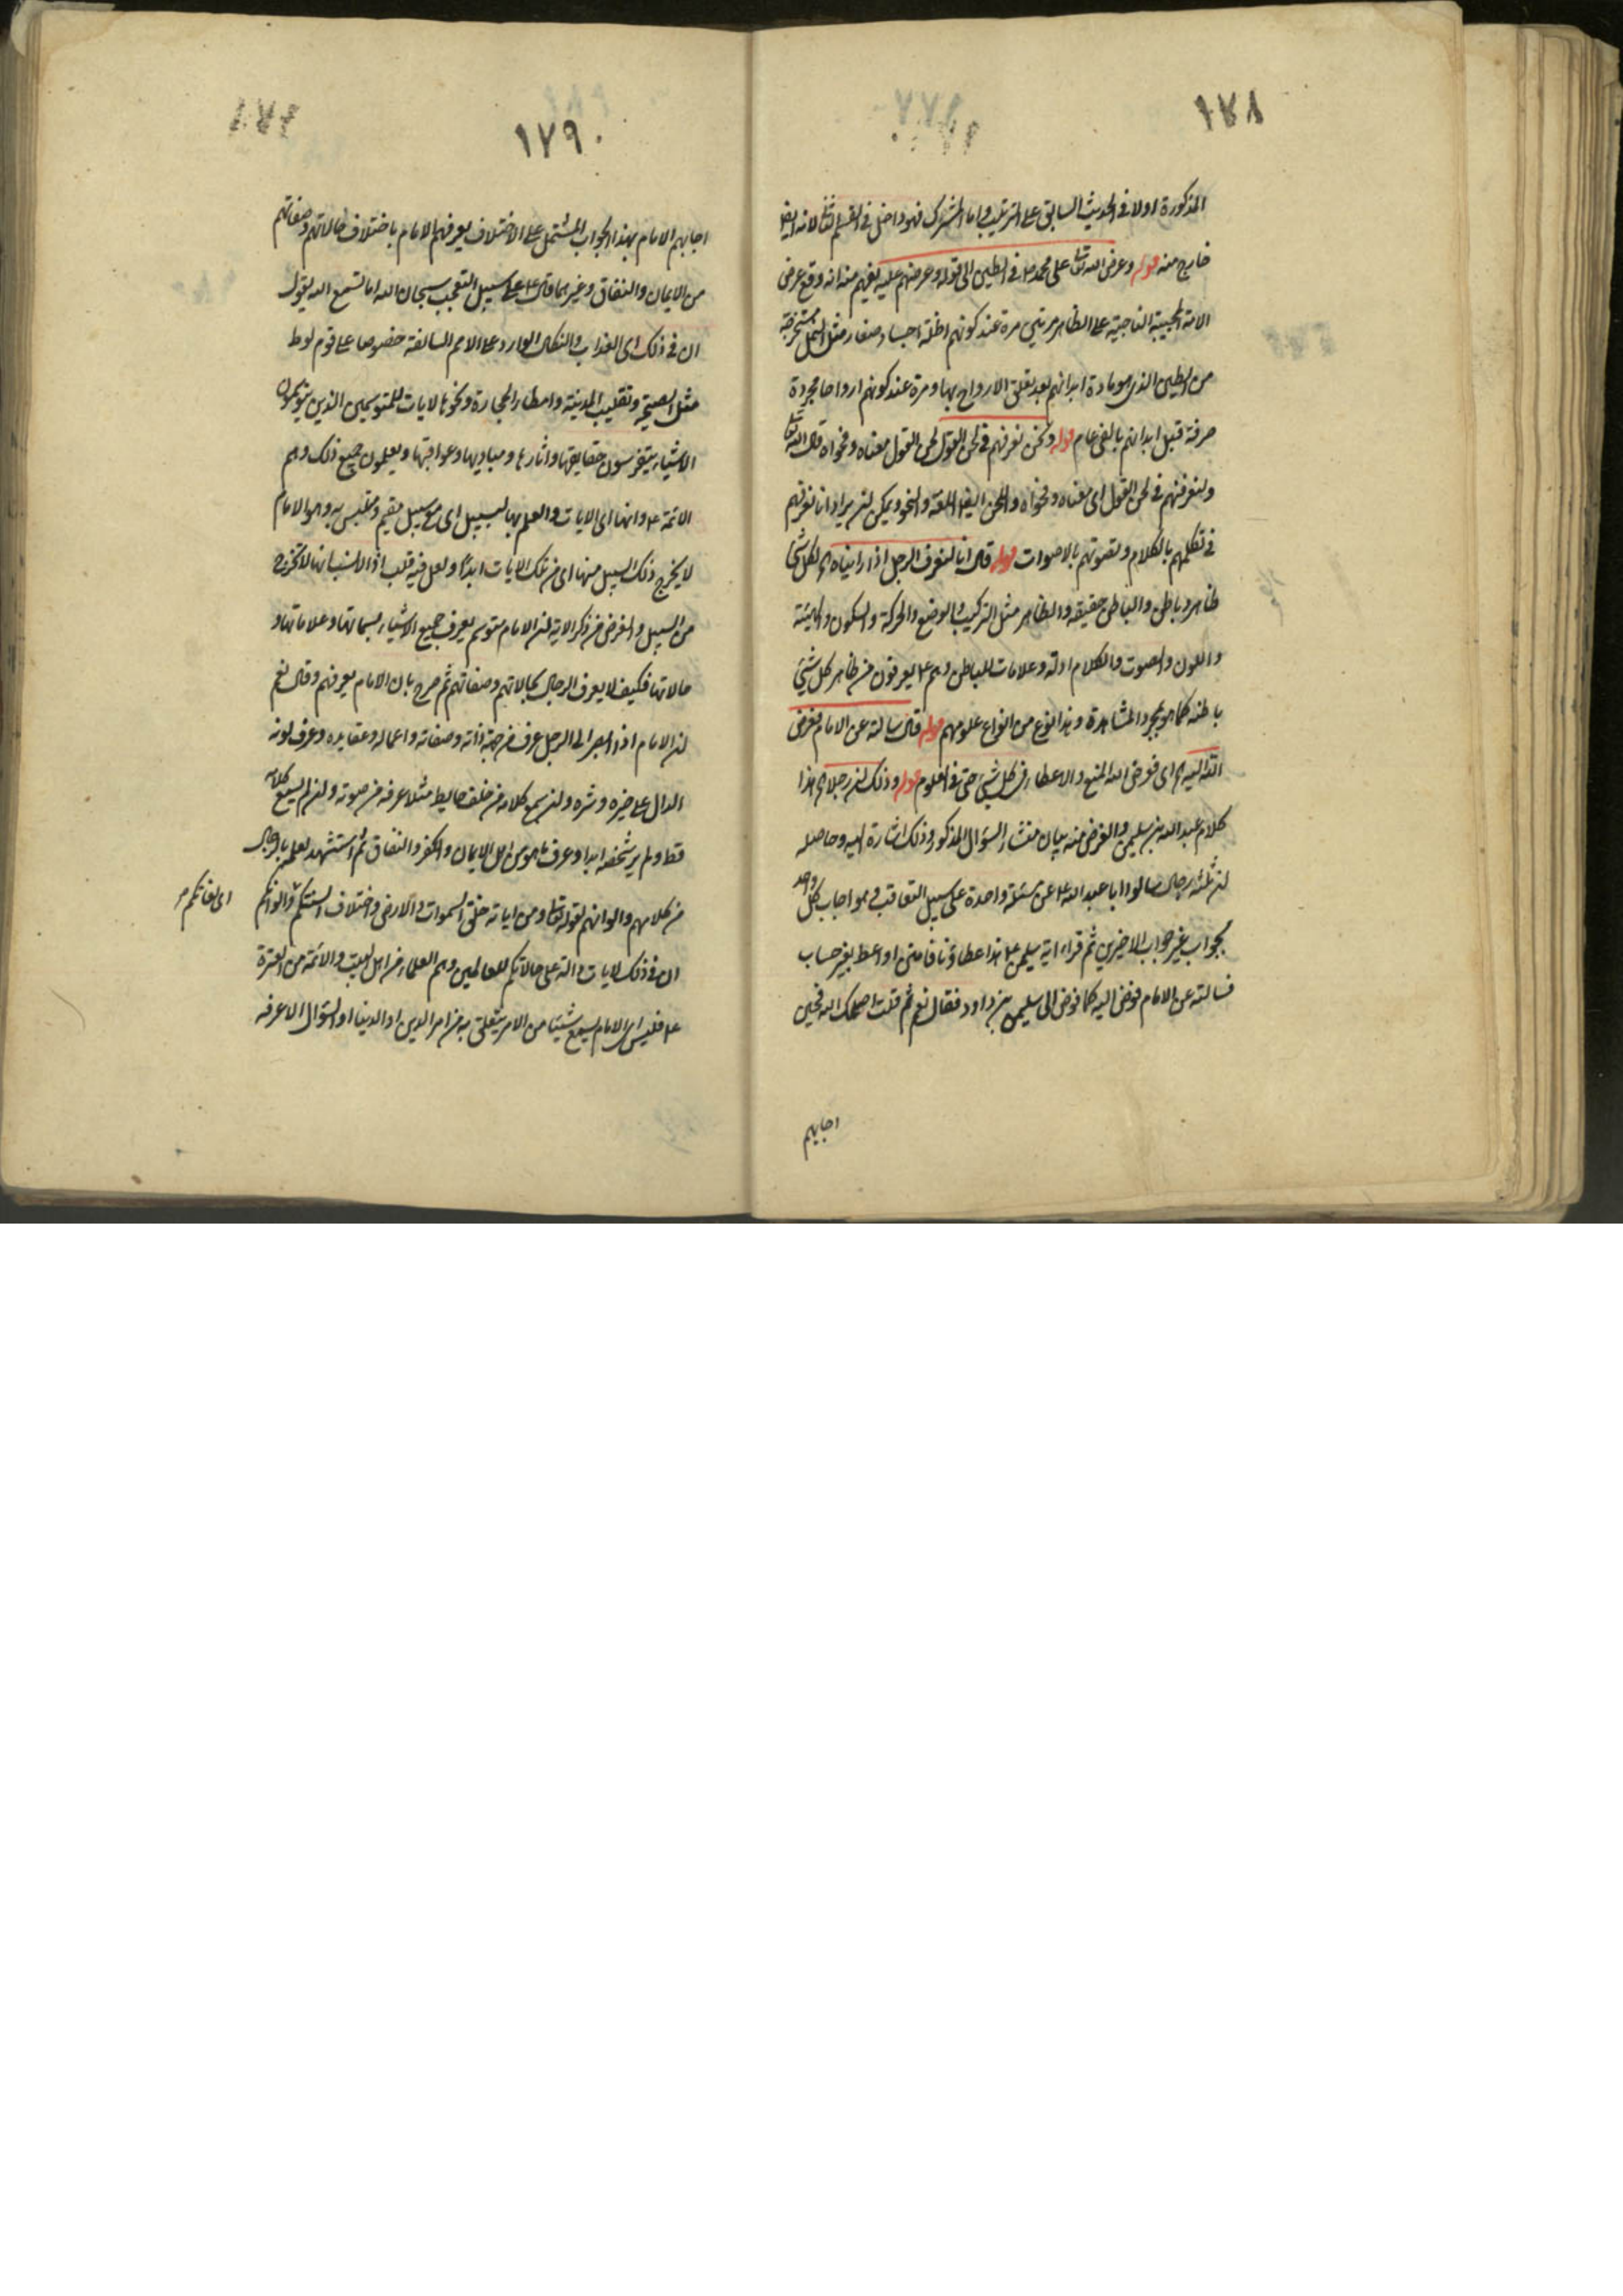 ١٧٨
المذكورة اولا فى الحديث السابق على الترتيب واما المشرك فهو داخل فى القسم الثالث لانه ايضا
خارج منه قوله وعرض الله تعالى على محمد ص فى الطين الى قوله وعرضهم عليه يفهم منه انه وقع عرض
الامة المجيبة الناجية على الظاهر مرتين مرة عند كونهم اظلة اجساد صغار مثل النمل مستخرجة
من الطين الذى هو مادة ابدانهم بعد تعلق الارواح بها ومرة عند كونهم ارواحا مجردة
صرفة قبل ابدانهم بالفى عام قوله ونحن نعرفهم فى لحن القول لحن القول معناه وفحواه قال الله تعالى
ولتعرفنهم فى لحن القول اى معناه وفحواه واللحن ايضا اللغة والنحو ويمكن ان يراد انا نعرفهم
فى تكلمهم بالكلام وتصوتهم بالاصوات قوله قال انا لنعرف الرجل اذا رايناه اه لكل شئ
ظاهر وباطن والباطن حقيقة والظاهر مثل التركيب والوضع والحركة والسكون والهيئة
واللون والصوت والكلام ادلة وعلامات للباطن وهم ع يعرفون من ظاهر كل شئ
باطنه كما هو بمجرد المشاهدة وهذا نوع من انواع علومهم قوله قال سالته عن الامام فوض
الله اليه اه اى فوض الله المنع والاعطاء فى كل شئ حتى فى العلوم قوله وذلك ان رجلا اه هذا
كلام عبد الله بن سليمن والغرض منه بيان منشاء السؤال المذكور وذلك اشارة اليه وحاصله
ان ثلثة رجال سالوا ابا عبد الله ع عن مسئلة واحدة على سبيل التعاقب وهو اجاب كل واحد
بجواب غير جواب الاخيرين ثم قراء اية سليمن ع هذا عطاؤنا فامنن او اعط بغير حساب
فسالته عن الامام فوض اليه كما فوض الى سليمن بن داود فقال نعم ثم قلت اصلحك الله فحين
اجابهم
١٧٩
اجابهم الامام بهذا الجواب المشتمل على الاختلاف يعرفهم الامام باختلاف حالاتهم وصفاتهم
من الايمان والنفاق وغيرهما قال ع على سبيل التعجب سبحان الله اما تسمع الله يقول
ان فى ذلك اى العذاب والنكال الوارد على الامم السالفة خصوصا على قوم لوط
مثل الصيحة وتقليب المدينة وامطار الحجارة ونحوها لايات للمتوسمين الذين يتوسمون
الاشياء يتفرسون حقايقها واثارها ومباديها وعواقبها ويعلمون جميع ذلك وهم
الائمة ع وانها اى الايات والعلم بها لبسبيل اى مع سبيل مقيم ومتلبس به وهو الامام
لا يخرج ذلك السبيل منها اى من تلك الايات ابدا ولعل فيه قلب اذ الانسب انها لا تخرج
من السبيل والغرض من ذكر الاية ان الامام متوسم يعرف جميع الاشياء بسماتها وعلاماتها و
حالاتها فكيف لا يعرف الرجال بحالاتهم وصفاتهم ثم صرح بان الامام يعرفهم وقال نعم
ان الامام اذا ابصر الى الرجل عرف من جهة ذاته وصفاته واعماله وعقايده وعرف لونه
الدال على خيره وشره وان سمع كلامه من خلف حايط مثلا عرفه من صوته وان لم يسمع كلامه
قط ولم ير شخصه ابدا وعرف ما هو من اهل الايمان والكفر والنفاق ثم استشهد لعلمه بالرجال
من كلامهم والوانهم لقوله تعالى ومن اياته خلق السموات والارض واختلاف السنتكم والوانكم
اى لغاتكم
ان فى ذلك لايات دالة على حالاتكم للعالمين وهم العلماء من اهل البيت والائمة من العترة
ع فليس الامام يسمع شيئا من الامر يتعلق به من امر الدين او الدنيا او السؤال الا عرفه